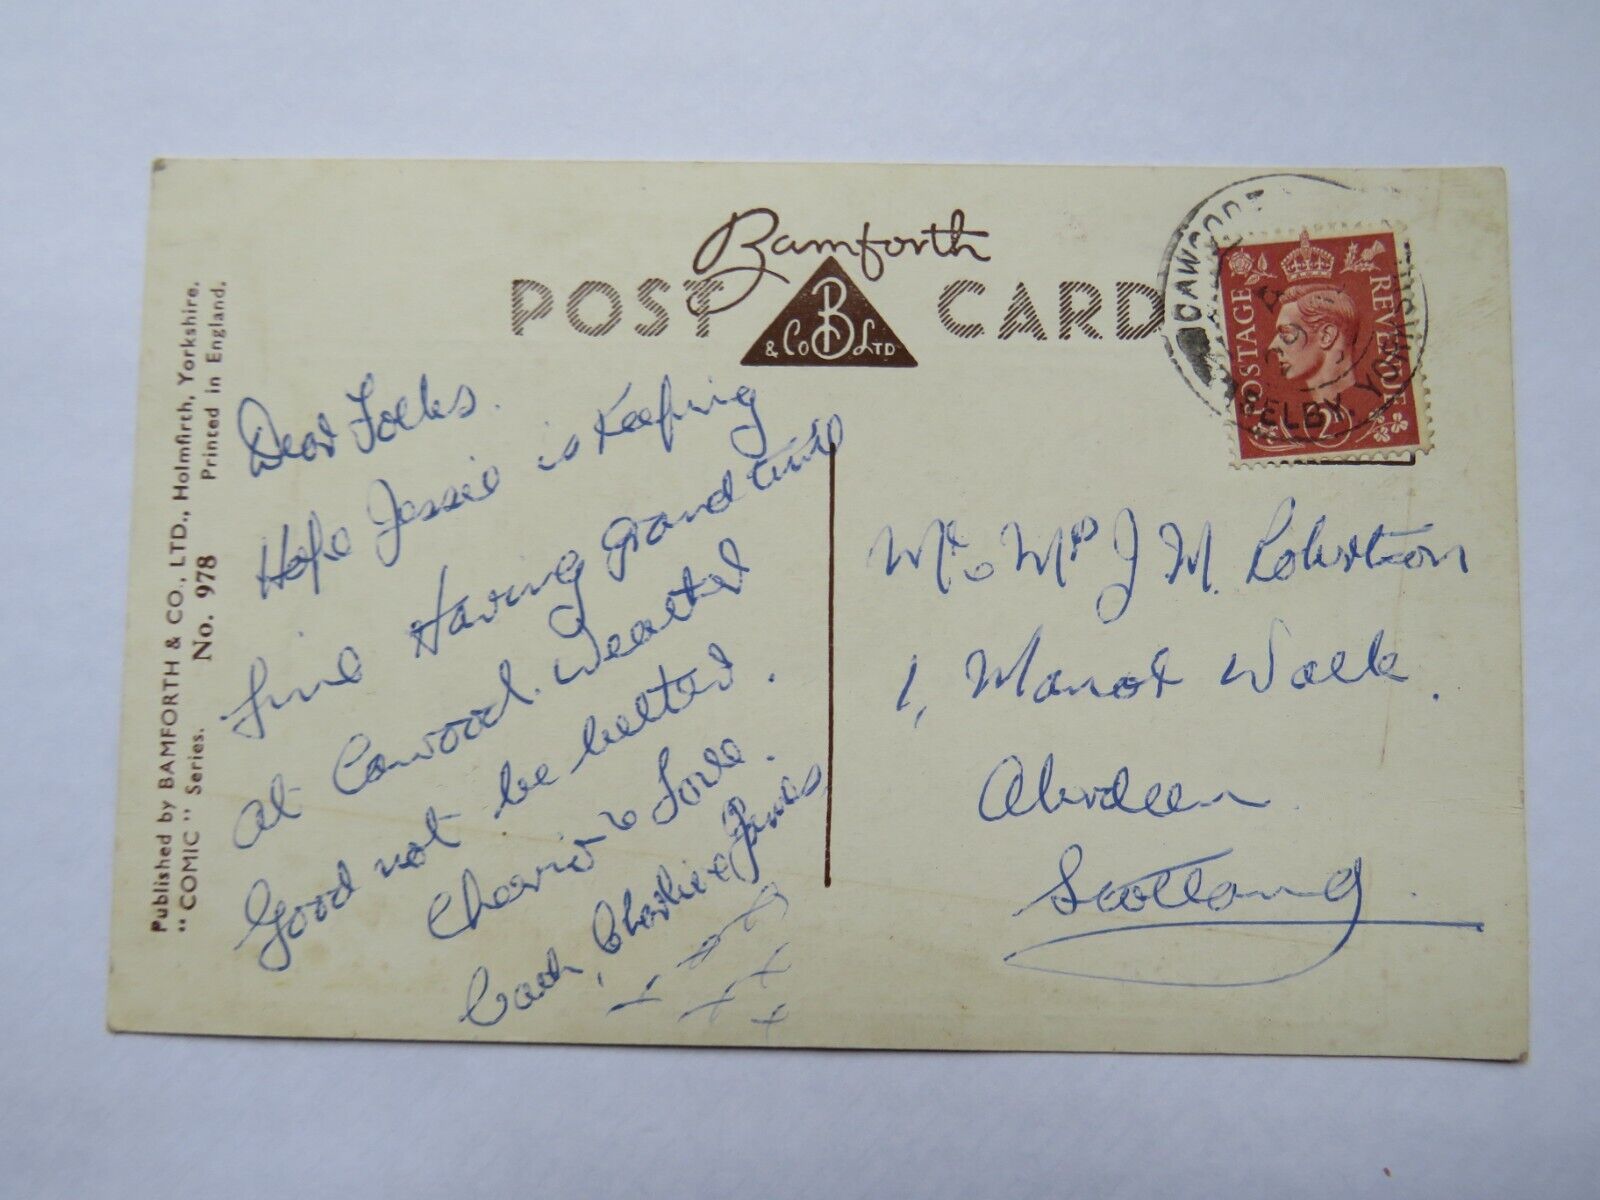 Published by BAMFORTH & CO., LTD., Holmfirth, Yorkshire.
"COMIC" Series. No. 978 Printed in England.
Bamforth
POST CARD
B
& Co LTD
Dear Folks.
Hope Jessie is Keeping
fine Having grand time
at Cawood. Weather
Good not be better.
Cheerio & Love.
Charlie & James
x x x
x x x
x
POSTAGE REVENUE
2
CAWOOD
29
SELBY. YORKSHIRE
Mr & Mrs J M Robertson
1, Manor Walk.
Aberdeen.
Scotland.